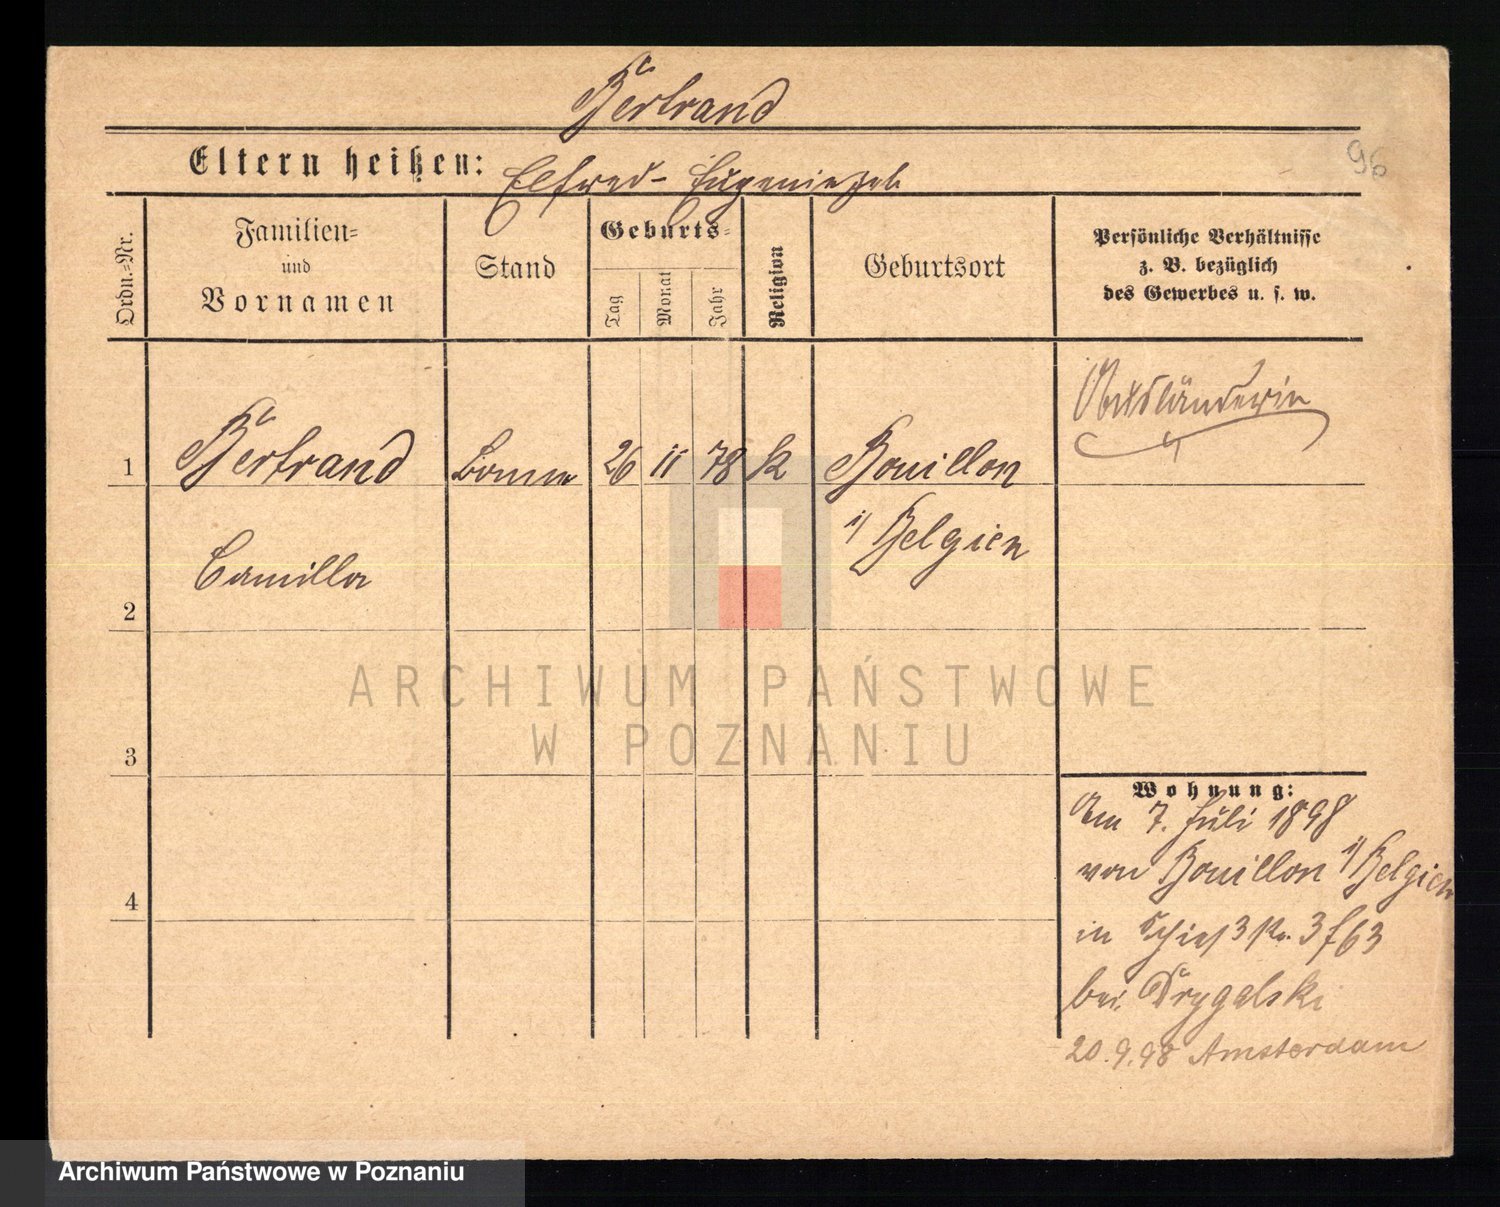 Bertrand
Eltern heißen: Elfred - Eugenie geb
96
Ordn.-Nr.
Familien-
und
Vornamen
Stand
Geburts-
Tag
Monat
Jahr
Religion
Geburtsort
Persönliche Verhältnisse
z. B. bezüglich
des Gewerbes u. s. w.
Ausländerin
1 Bertrand Bonne 26 11 78 K Bouillon
i/ Belgien
Camilla
2
3
4
Wohnung:
Am 7. Juli 1898
von Bouillon i/ Belgien
in Schieß 3
bei Drygalski
20.9.98 Amsterdam
ARCHIWUM PAŃSTWOWE
W POZNANIU
Archiwum Państwowe w Poznaniu